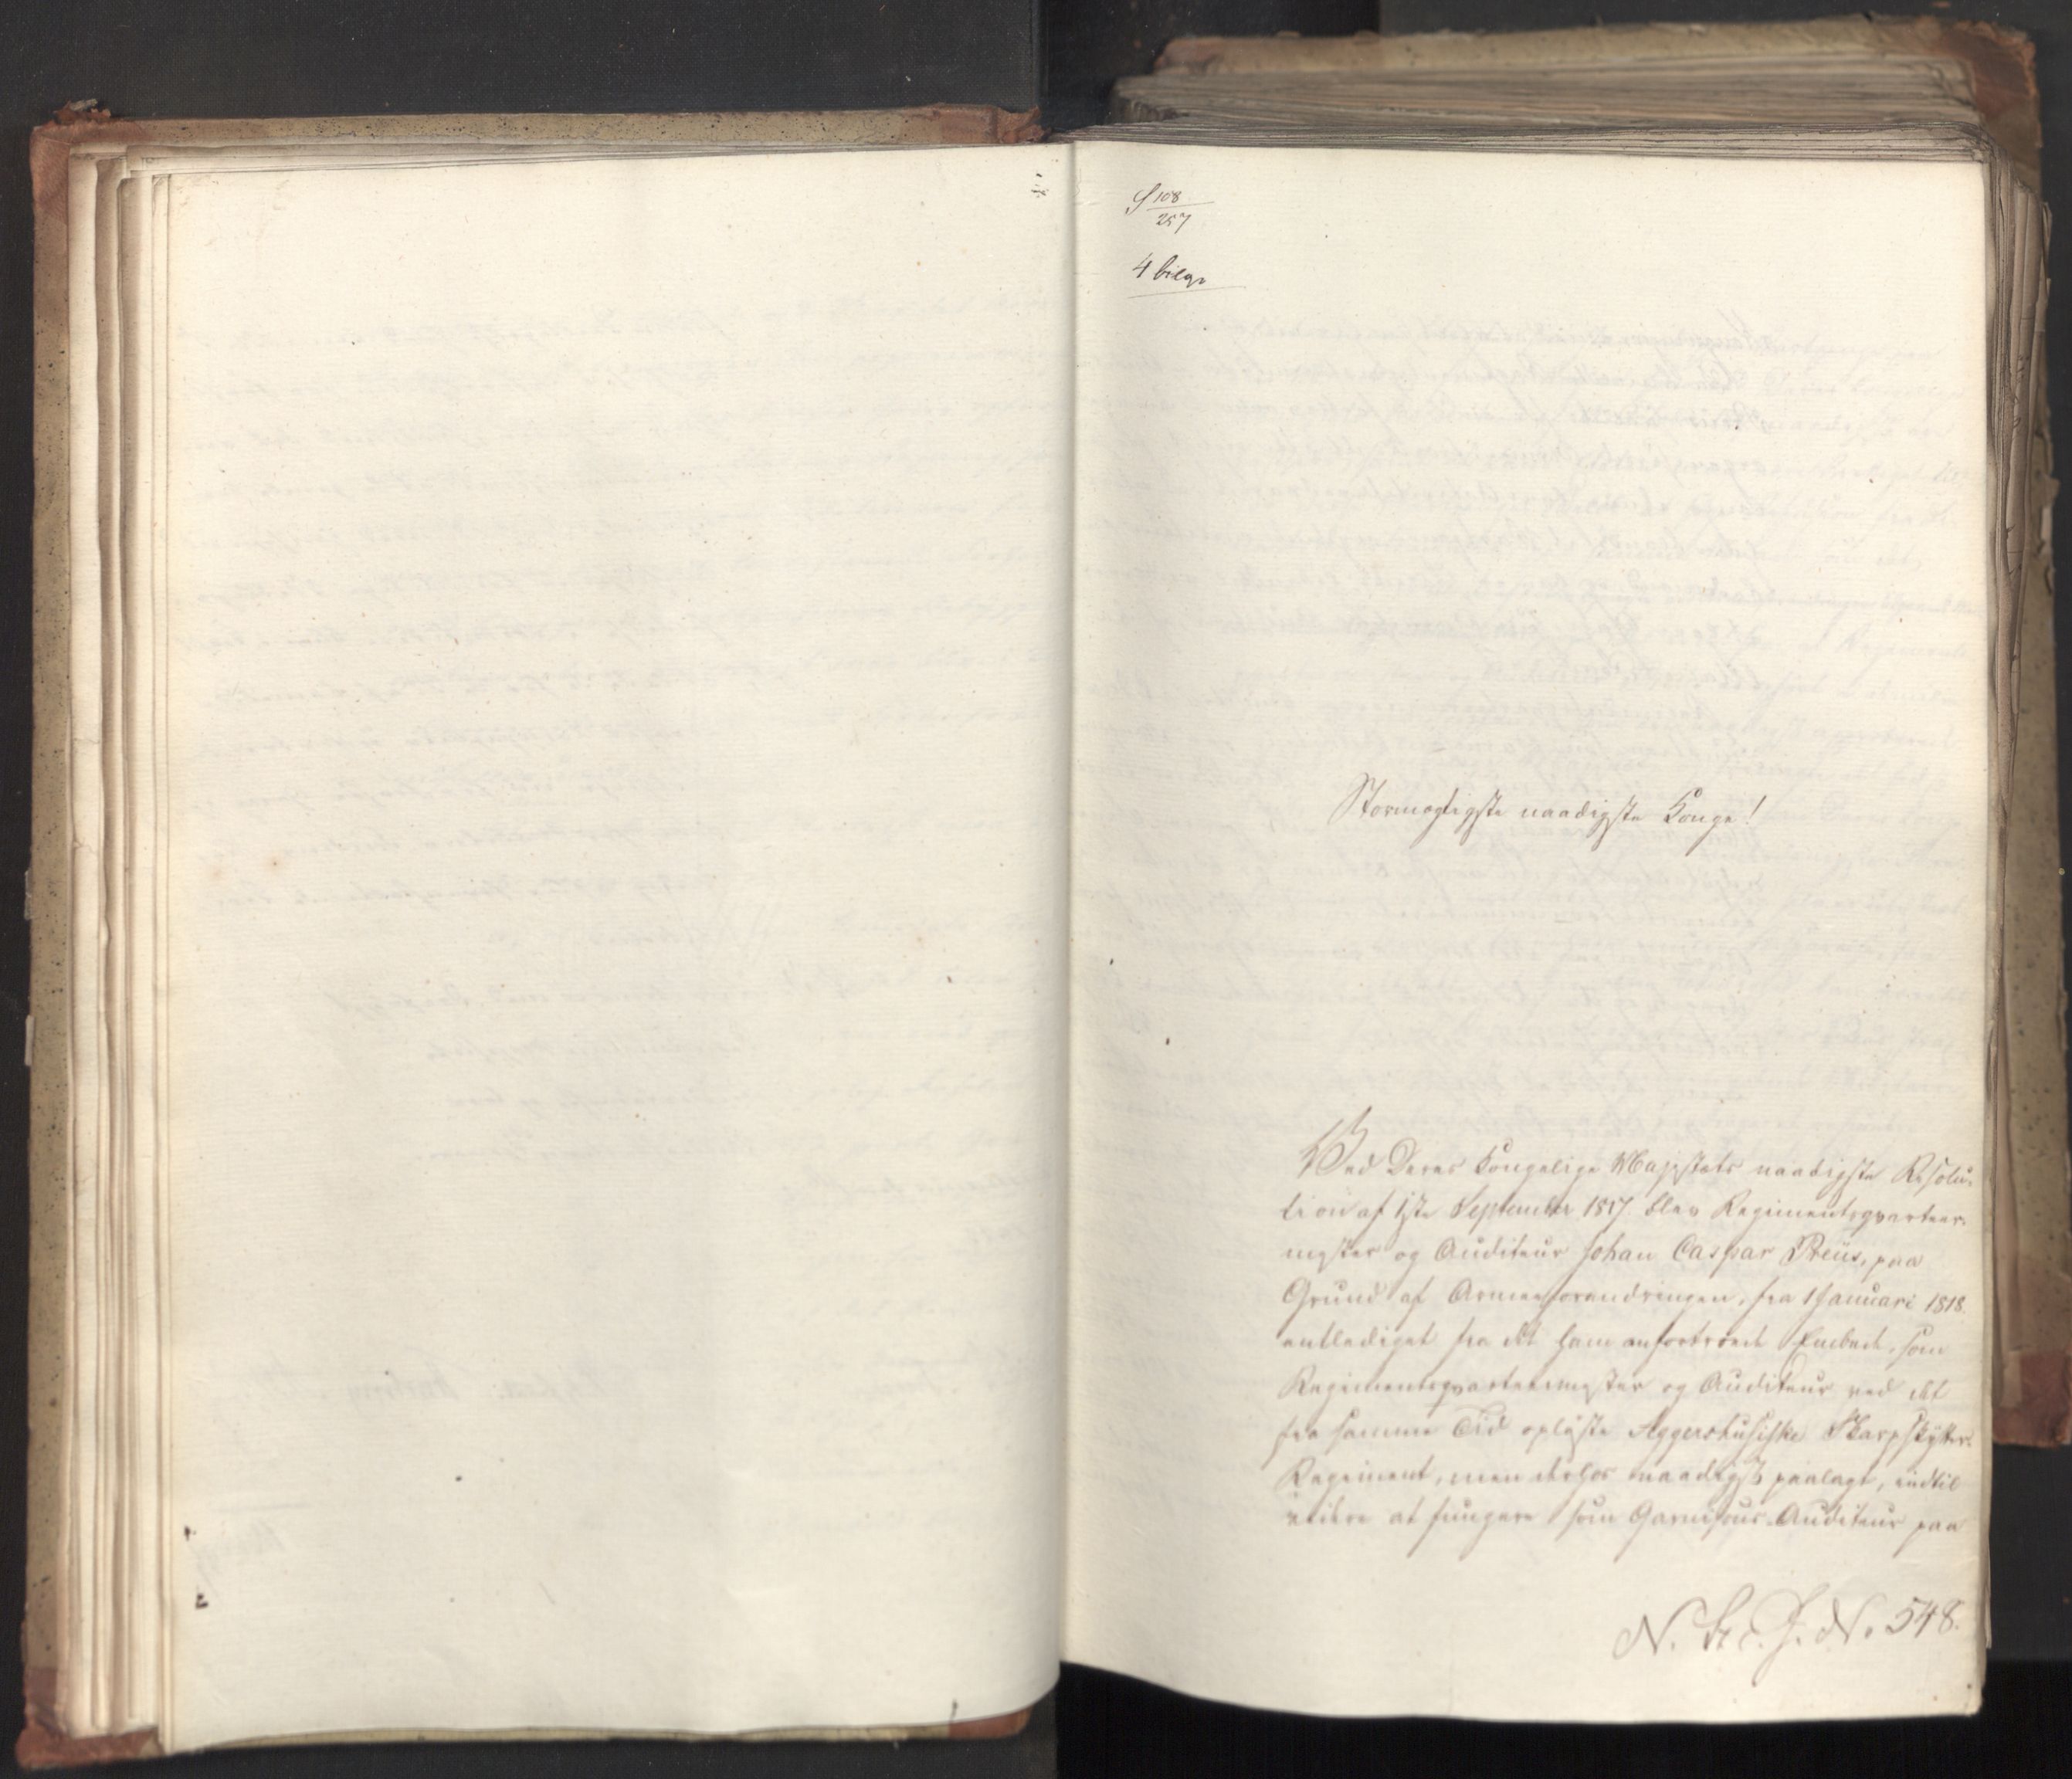 S 108
257
4 bilgr
Stormægtigste naadigste Konge!
Ved Deres Kongelige Majestæts naadigste Resolu-
tion af 1ste September 1817 blev Regimentsqvarteer-
mester og Auditeur Johan Caspar Preüs, paa
Grund af Armeeforandringen, fra 1 Januari 1818
entlediget fra det ham anfortroede Embede, som
Regimentsqvarteermester og Auditeur ved det
fra samme Tid opløste Aggershusiske Skarpskytter-
Regiment, men derhos naadigst paalagt, indtil
videre at fungere som Garnisons-Auditeur paa
N. St. c. J. No. 548.